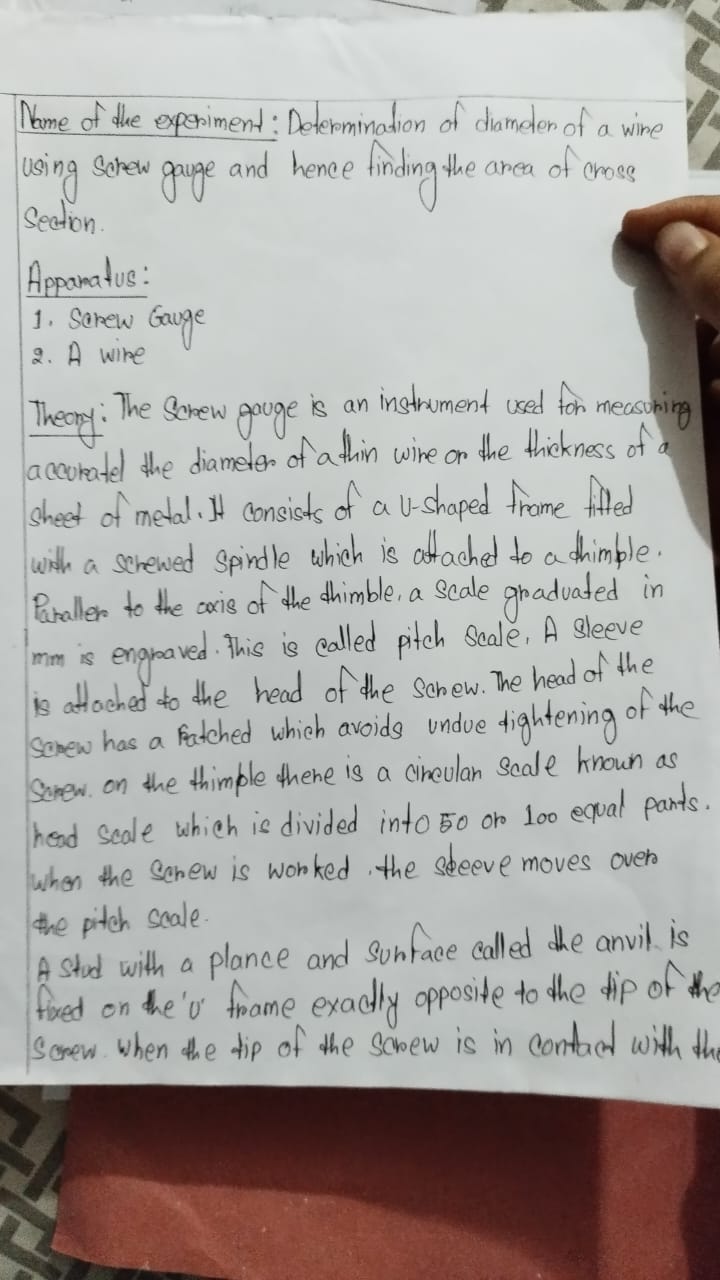 Name of the experiment: Determination of diameter of a wire
using Screw gauge and hence finding the area of cross
Section.
Apparatus:
1. Screw Gauge
2. A wire
Theory: The Screw gauge is an instrument used for measuring
accuratel the diameter of a thin wire or the thickness of a
sheet of metal. It consists of a U-shaped frame fitted
with a screwed spindle which is attached to a thimble.
Paraller to the axis of the thimble, a scale graduated in
mm is engraved. This is called pitch Scale. A Sleeve
is attached to the head of the screw. The head of the
Screw has a Ratched which avoids undue tightening of the
Screw. on the thimble there is a circular Scale known as
head scale which is divided into 50 or 100 equal parts.
when the Screw is worked. the sleeve moves over
the pitch scale.
A Stud with a plance and Surface called the anvil is
fixed on the 'U' frame exactly opposite to the tip of the
Screw. when the tip of the screw is in contact with the